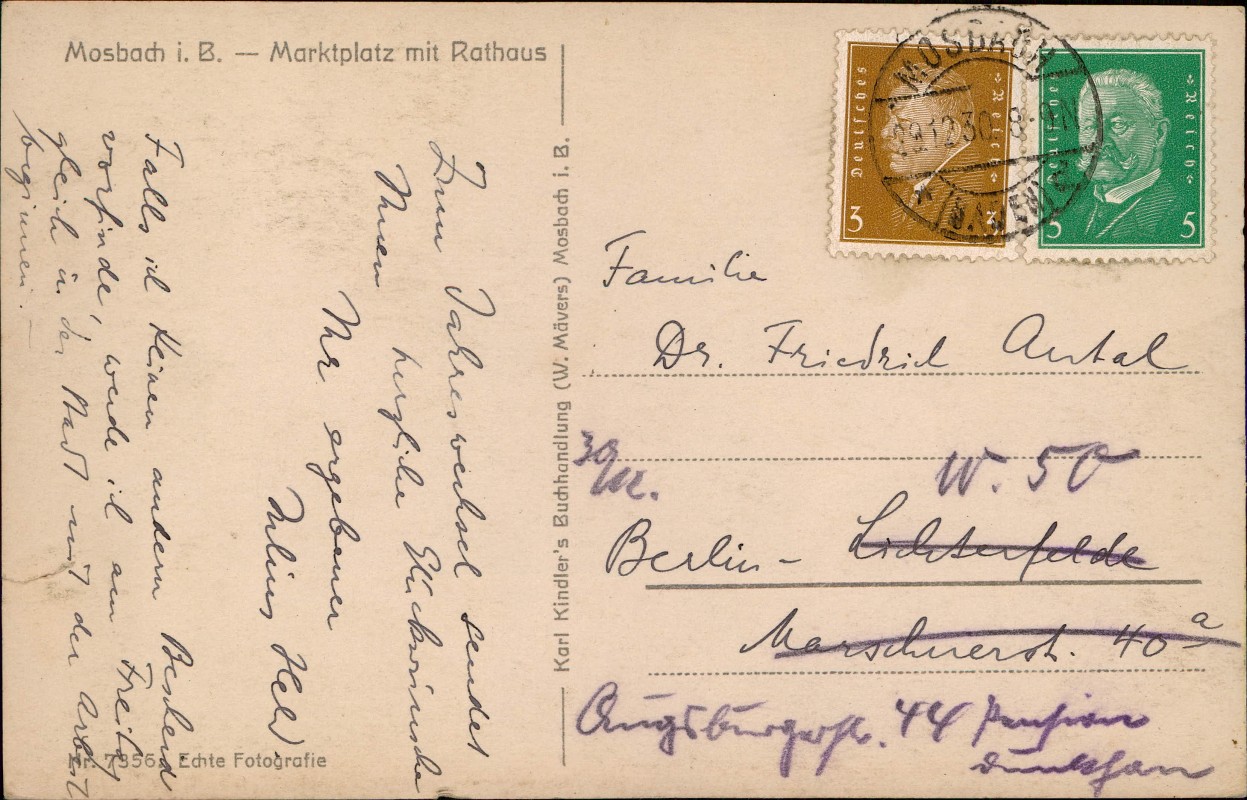 Mosbach i. B. — Marktplatz mit Rathaus
Zum Jahreswechsel sendet
Ihnen herzliche Glückwünsche
Ihr ergebener
Julius Held.
Falls ich keinen andern Bescheid
vorfinde, werde ich am Freitag
gleich in der Stadt mit der Arbeit
beginnen. —
Nr. 7356 Echte Fotografie
Karl Kindler's Buchhandlung (W. Mävers) Mosbach i. B.
Deutsches Reich
3 3
Deutsches Reich
5 5
MOSBACH
29.12.30. 8-9N
* (BADEN)
Familie
Dr. Friedrich Antal
30/XII.
W. 50
Berlin - Lichterfelde
Marschnerst. 40a
Augsburgerstr. 44 Pension